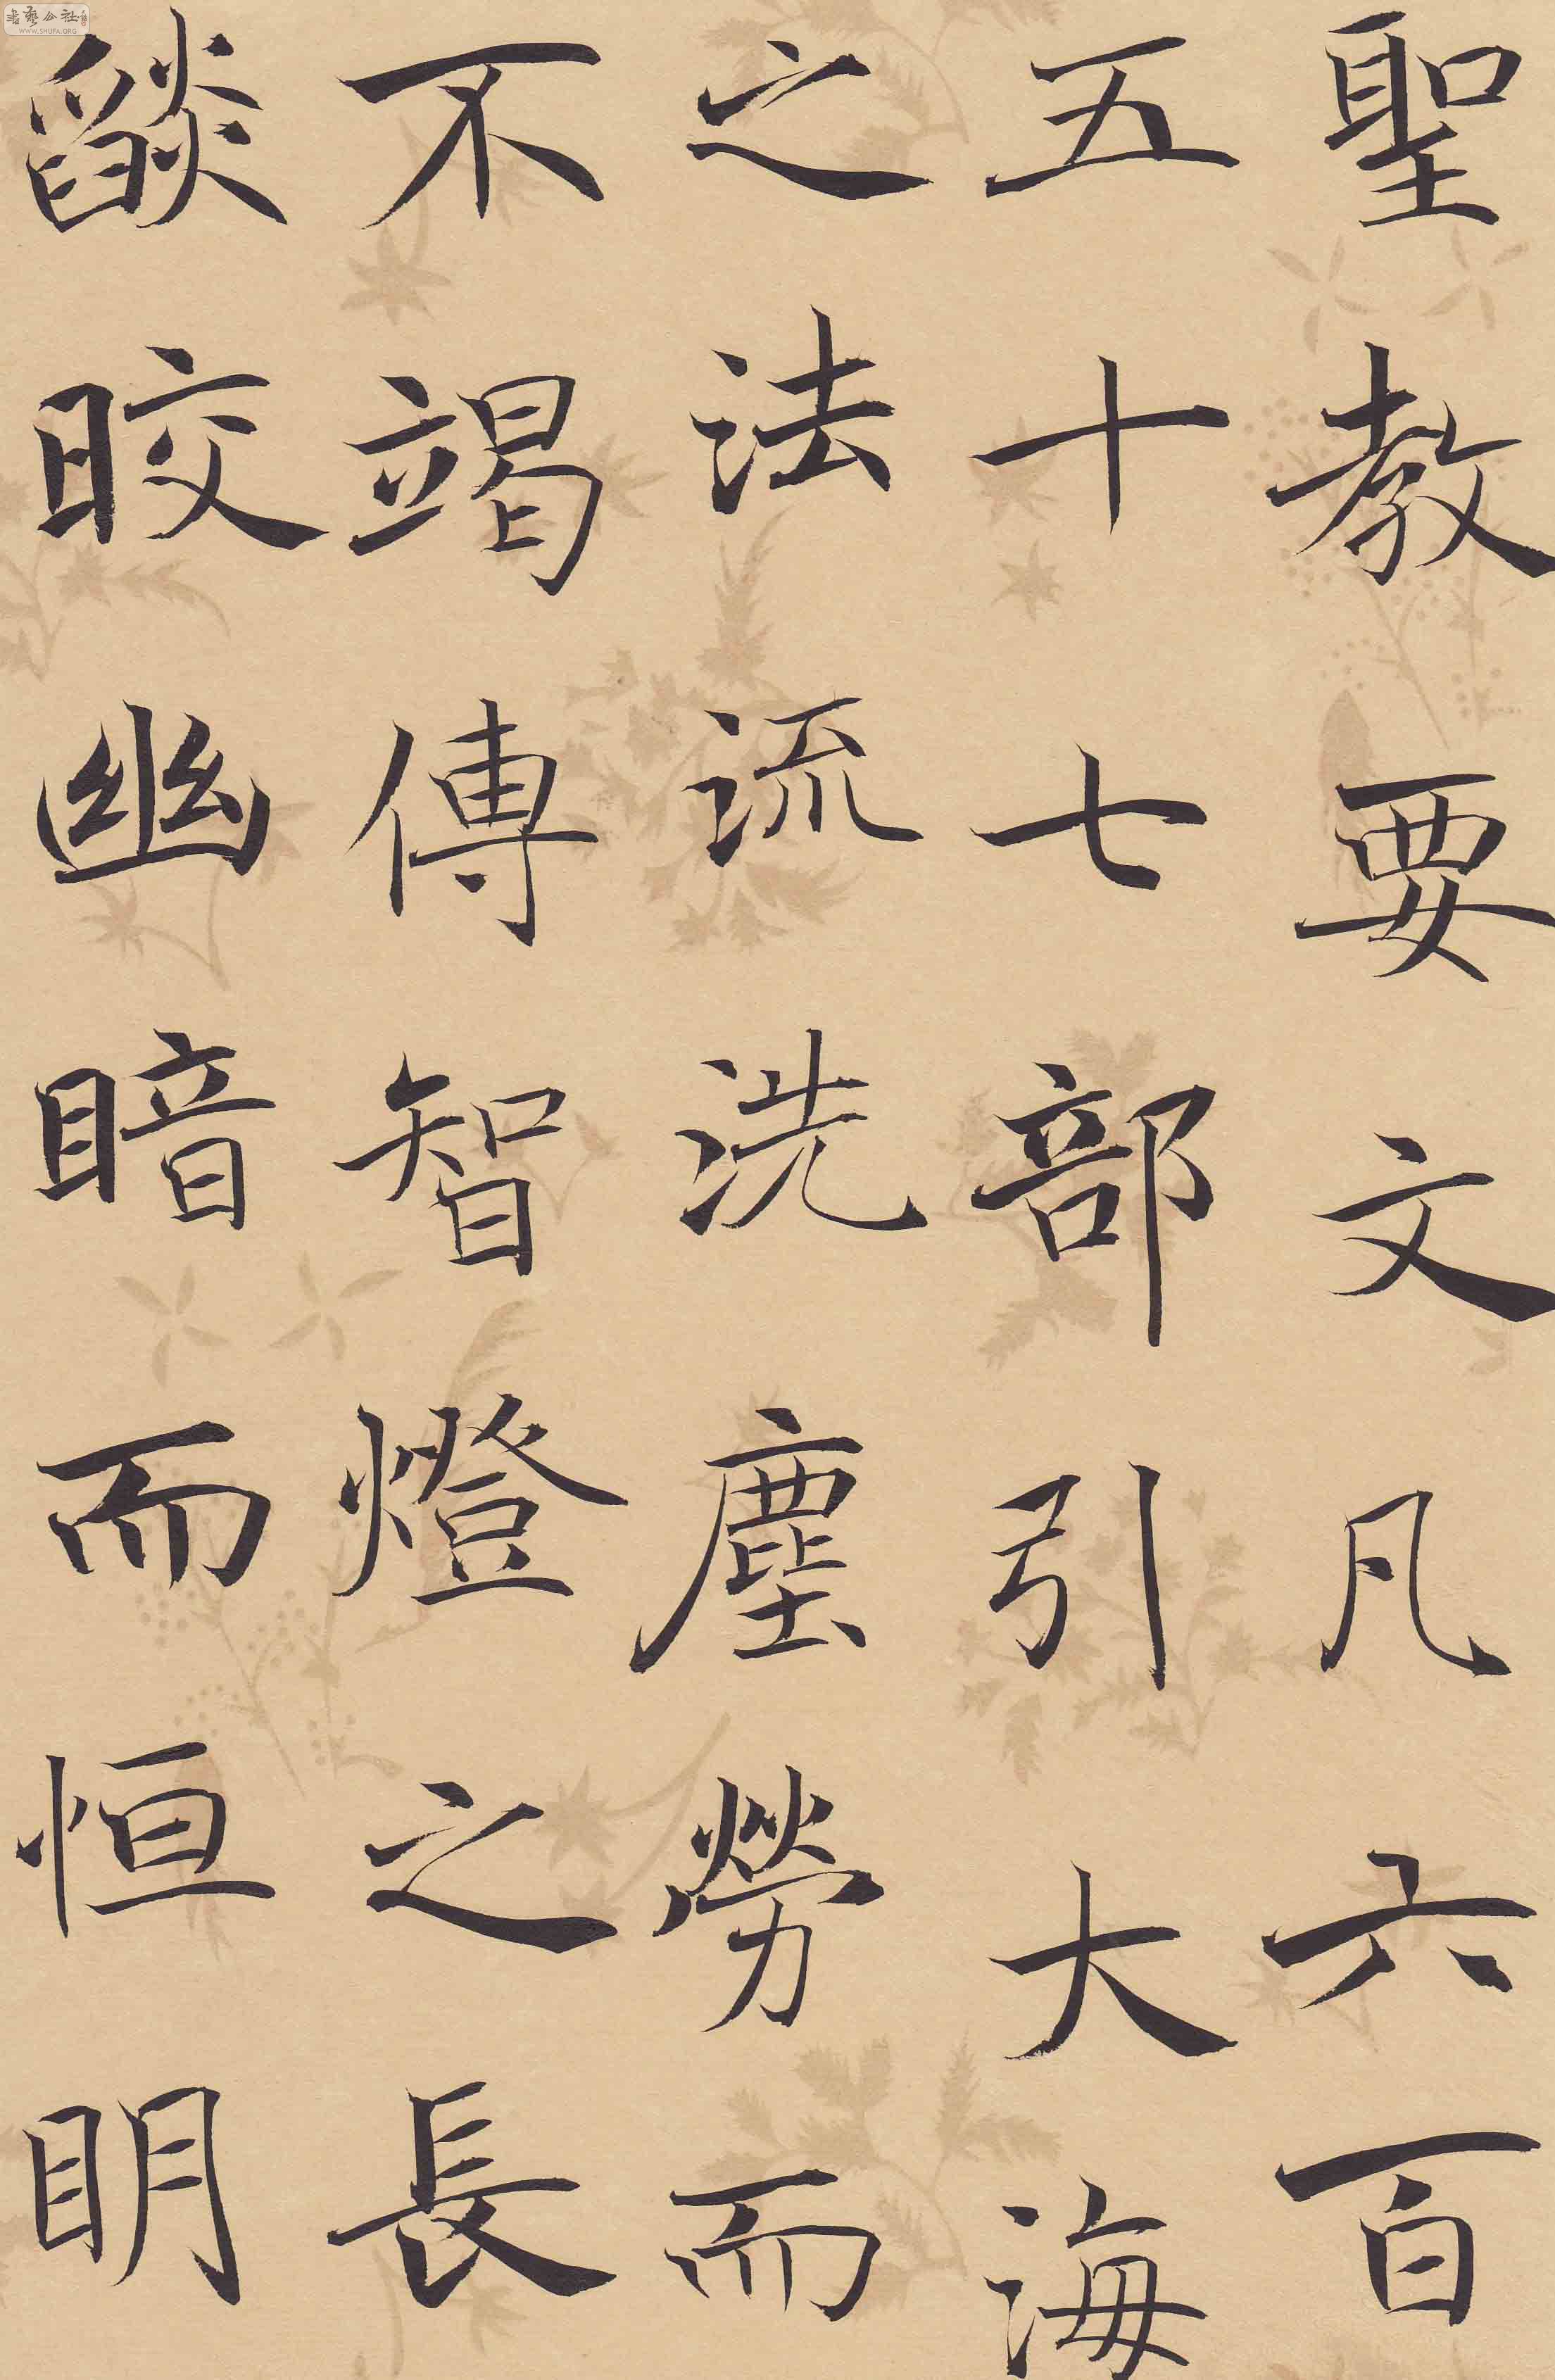 聖教要文凡六百
五十七部引大海
之法流洗塵勞而
不竭傳智燈之長
燄晈幽暗而恒明
書藝公社
WWW.SHUFA.ORG